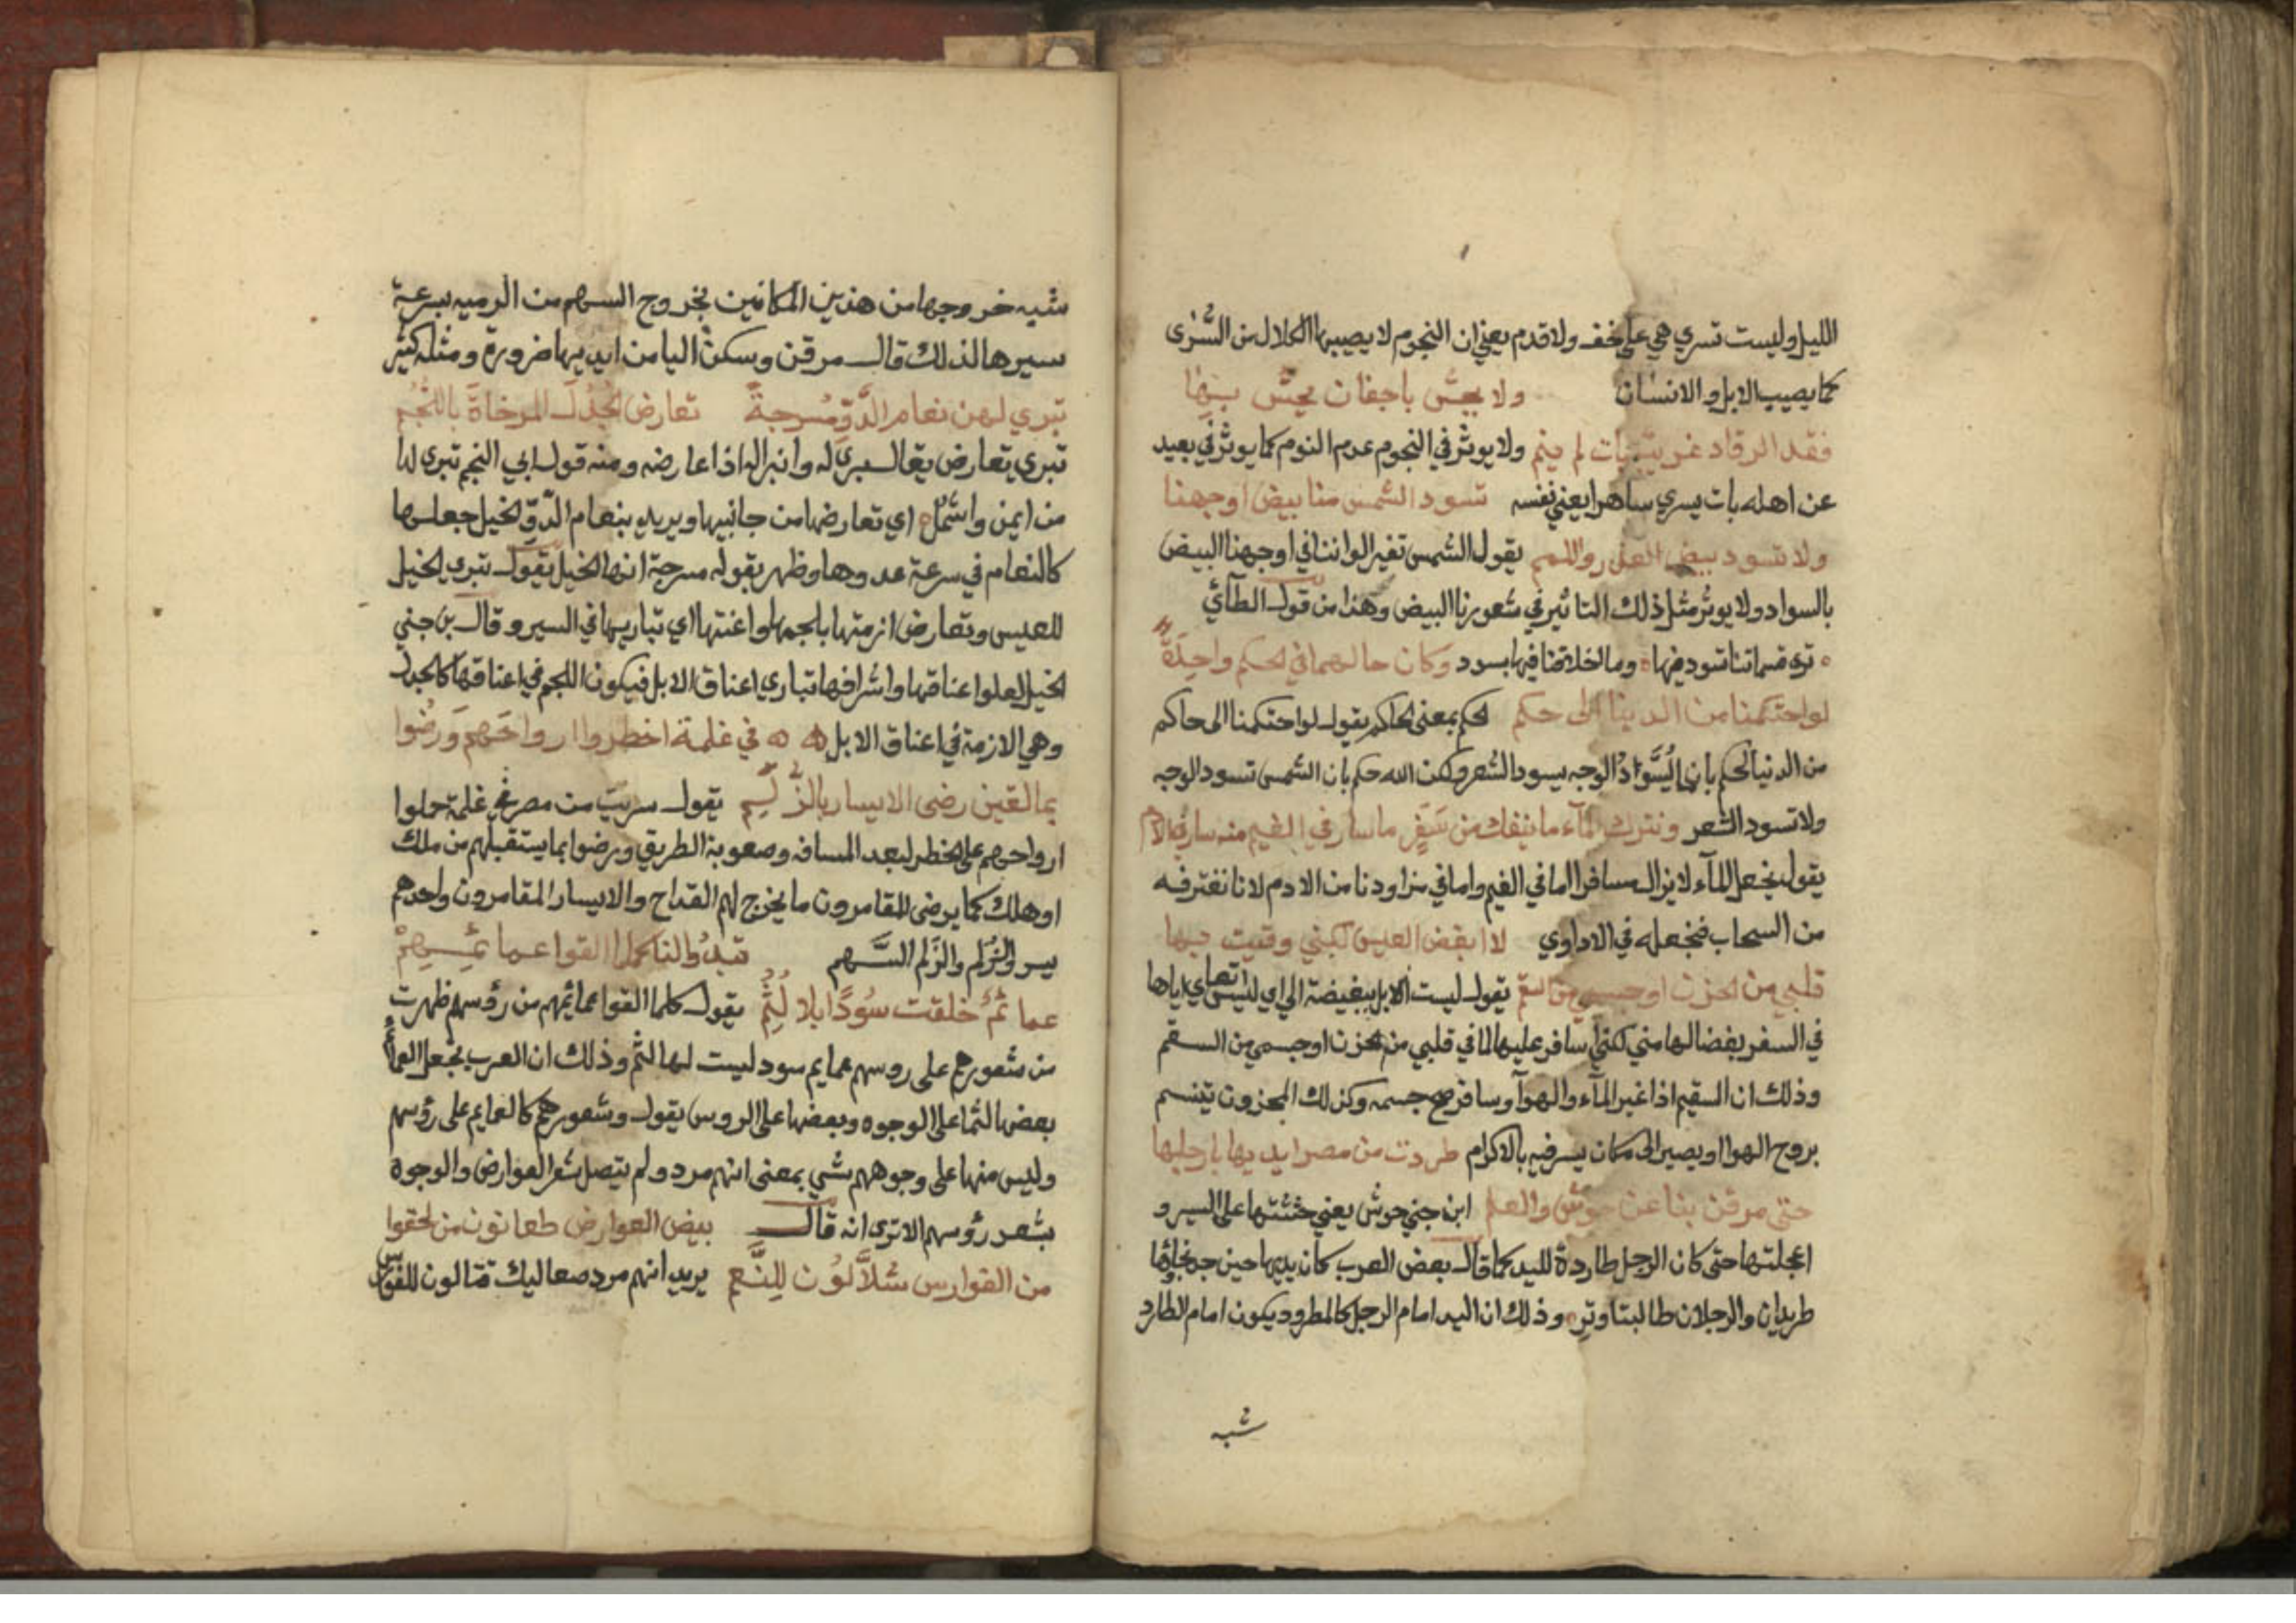 الليل وليست تسري هي على خف ولا قدم يعني ان النجوم لا يصيبها الكلال من السُّرى
كما يصيب الابل والانسان ولا يحسّ باجفان يحسّ بها
فقد الرقاد غريب بات لم ينم ولا يوثر في النجوم عدم النوم كما يوثر في بعيد
عن اهله بات يسري ساهرا يعني نفسه تسود الشمس منا بيض اوجهنا
ولا تسود بيض العذر واللمم يقول الشمس تغير الواننا في اوجهنا البيض
بالسواد ولا يوثر مثل ذلك التاثير في شعورنا البيض وهذا من قول الطآئي
ترى قسماتنا تسود فيها وما اخلاقنا فيها بسود وكان حالهما في الحكم واحِدَةً
لو احتكمنا من الدينا الى حكم الحكم بمعنى الحاكم يقول لو احتكمنا الى حاكم
من الدنيا لحكم بان ما يُسَوّدُ الوجه يسود الشعر ولكن الله حكم بان الشمس تسود الوجه
ولا تسود الشعر ونترك المآء ما ينفك من سَفَرٍ ما سار في الغيم منه سار في الادم
يقول نجعل المآء لا يزال مسافرا اما في الغيم واما في مزاودنا من الادم لانا نغترفه
من السحاب فنجعله في الاداوي لا ابغض العيس لكني وقيت بها
قلبي من الحزن او جسمي من السقم يقول ليست الابل ببغيضة الي اي ليس اتعابي اياها
في السفر بغضا لها مني لكنني اسافر عليها لاقي قلبي من الحزن او جسمي من السقم
وذلك ان السقيم اذا غير المآء والهوآ وسافر صح جسمه وكذلك المحزون يتنسم
بروح الهوا او يصير الى مكان يسر فيه بالاكرام طردت من مصر ايديها بارجلها
حتى مرقن بنا عن جوش والعلم ابن جني جوش يعني حثثتها على السير و
اعجلتها حتى كان الرجل طاردة لليد كما قال بعض العرب كان يديها حين جد نجاؤها
طريدان والرجلان طالبتا وتر وذلك ان اليد امام الرجل كالمطرود يكون امام الطارد
شبه
شبه خروجها من هذين المكانين بخروج السهم من الرميه بسرعة
سيرها لذلك قال مرقن وسكن اليا من ايديها ضرورة ومثله كثير
تبري لهن نعام الدَّوّ مُسرجةً تعارض الجُدُلَ المرخاةَ باللُّجُمِ
تبري تعارض يقال برى له وانبرا له اذا عارضه ومنه قول ابي النجم تبرى لها
من ايمن واشمل اي تعارضها من جانبيها ويريد بنعام الدّوّ الخيل جعلها
كالنعام في سرعة عدوها وظهر بقوله مسرجة انها الخيل يقول تبري الخيل
للعيس وتعارض ازمتها بلجمها واعنتها اي تباريها في السير وقال بن جني
الخيل لعلو اعناقها واشرافها تباري اعناق الابل فيكون اللجم في اعناقها كالجدل
وهي الازمة في اعناق الابل في غلمة اخطروا ارواحَهم وَرضُوا
بما لقين رضى الايسار بالزُّلَمِ يقول سريت من مصر في غلمة حملوا
ارواحهم على الخطر لبعد المسافه وصعوبة الطريق ورضوا بما يستقبلهم من ملك
او هلك كما يرضى المقامرون ما يخرج لهم القداح والايسار المقامرون واحدهم
يسر والزُلم والزَلم السَّهم تبدُوا لنا كلما القوا عمائمهمْ
عمائمٌ خلقت سُودًا بلا لُثُمِ يقول كلما القوا عمائمهم من رؤسهم ظهرت
من شعورهم على روسهم عمايم سود ليست لها لثم وذلك ان العرب تجعل العمائم
بعضها لثما على الوجوه وبعضها على الروس يقول وشعورهم كالعمايم على رؤسهم
وليس منها على وجوههم شي بمعنى انهم مرد ولم يتصل شعر العوارض والوجوه
بشعر رؤسهم الا ترى انه قال بيض العوارض طعانون من لحقوا
من الفوارس شلاَّلوُن لِلنَّعَمِ يريد انهم مرد صعاليك قتالون للفوارس